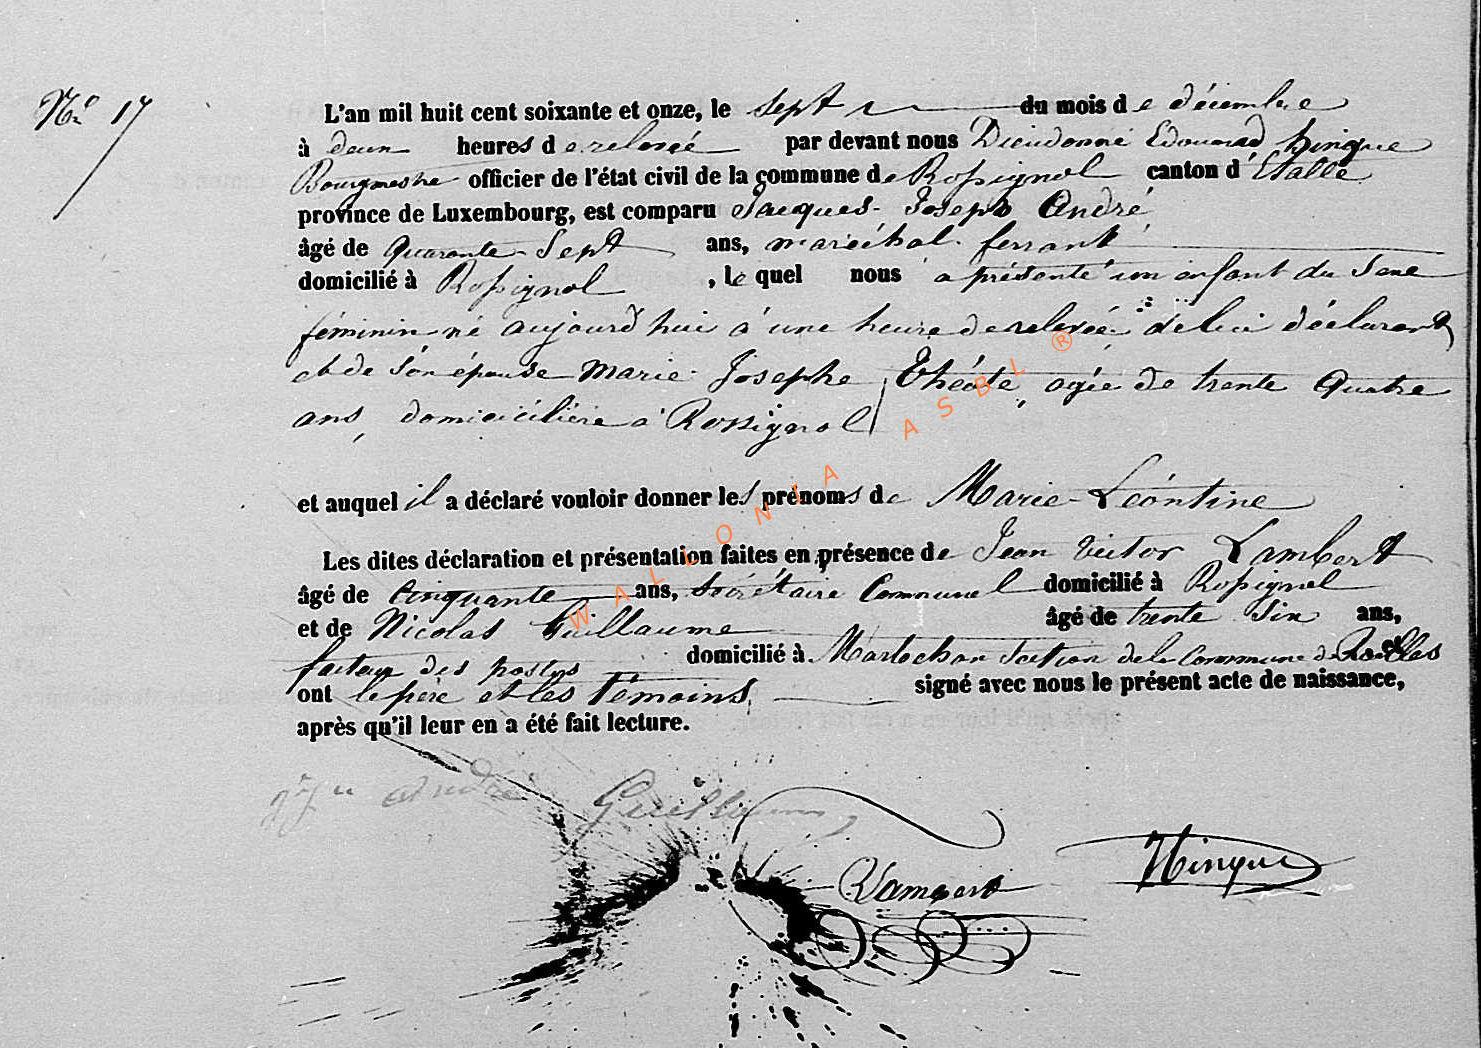 N° 17
L'an mil huit cent soixante et onze, le sept du mois de décembre
à deux heures de relevé par devant nous Dieudonné Edouard hinque
Bourgmestre officier de l'état civil de la commune de Rossignol canton d'Etalle
province de Luxembourg, est comparu Jacques Joseph André
âgé de Quarante-Sept ans, maréchal ferrant
domicilié à Rossignol, le quel nous a présenté un enfant du Sexe
féminin né aujourd'hui à une heure de relevée de lui déclarant
et de Son épouse Marie Josephe Théate, agée de trente Quatre
ans, domiciliére à Rossignol
et auquel il a déclaré vouloir donner les prénoms de Marie-Léontine
Les dites déclaration et présentation faites en présence de Jean Victor Lambert
âgé de Cinquante ans, Sécrétaire Communel domicilié à Rossignol
et de Nicolas Guillaume âgé de trente Six ans,
facteur des postes domicilié à Marbehan Section de la Commune de Roulles
ont le père et les Témoins signé avec nous le présent acte de naissance,
après qu'il leur en a été fait lecture.
WALLONIA ASBL ®
André Guillaume
Lambert Hinque